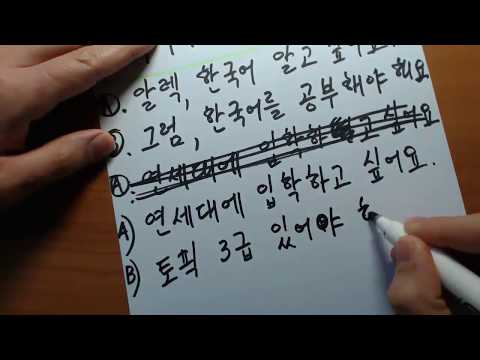 Ⓐ. 알렉, 한국어 알고 싶어요
Ⓑ. 그럼, 한국어를 공부해야 해요
Ⓐ. 연세대에 입학하고 싶어요
A) 연세대에 입학하고 싶어요.
B) 토픽 3급 있어야